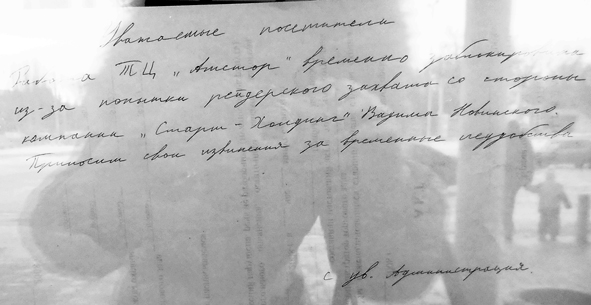 Уважаемые посетители
Работа ТЦ „Амстор" временно заблокирована
из-за попытки рейдерского захвата со стороны
компании „Смарт-Холдинг" Вадима Новинского.
Приносим свои извинения за временные неудобства
с ув. Администрация.